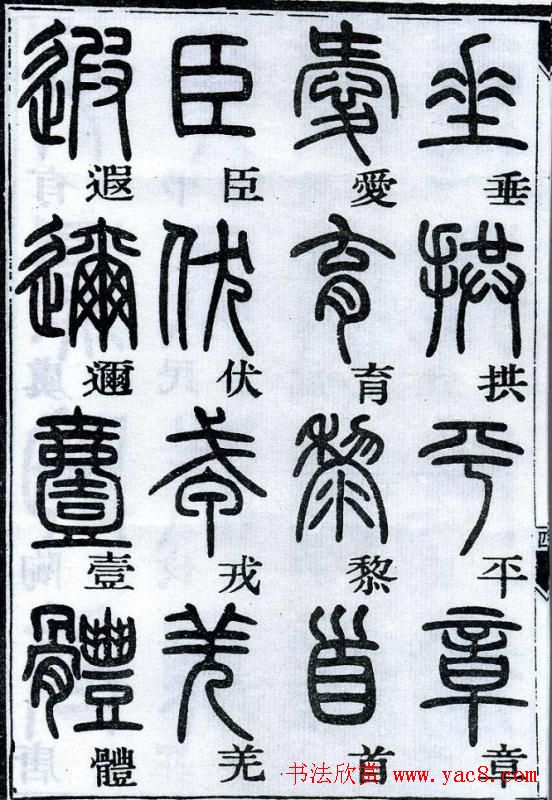 垂拱平章
愛育黎首
臣伏戎羌
遐邇壹體
四
书法欣赏
www.yac8.com